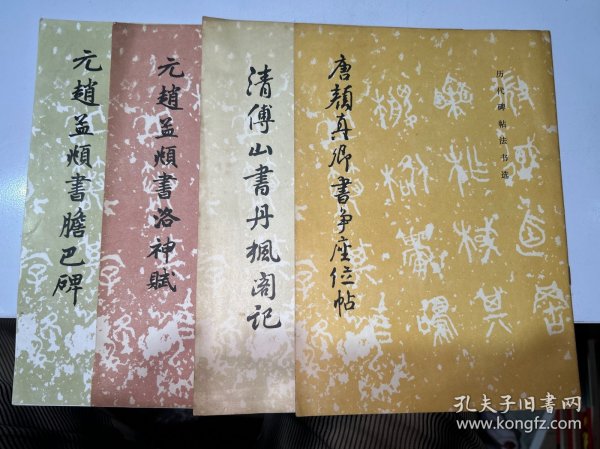 元趙孟頫書膽巴碑
元趙孟頫書洛神賦
清傅山書丹楓阁记
唐顏真卿書争座位帖
历代碑帖法书选
孔夫子旧书网
www.kongfz.com